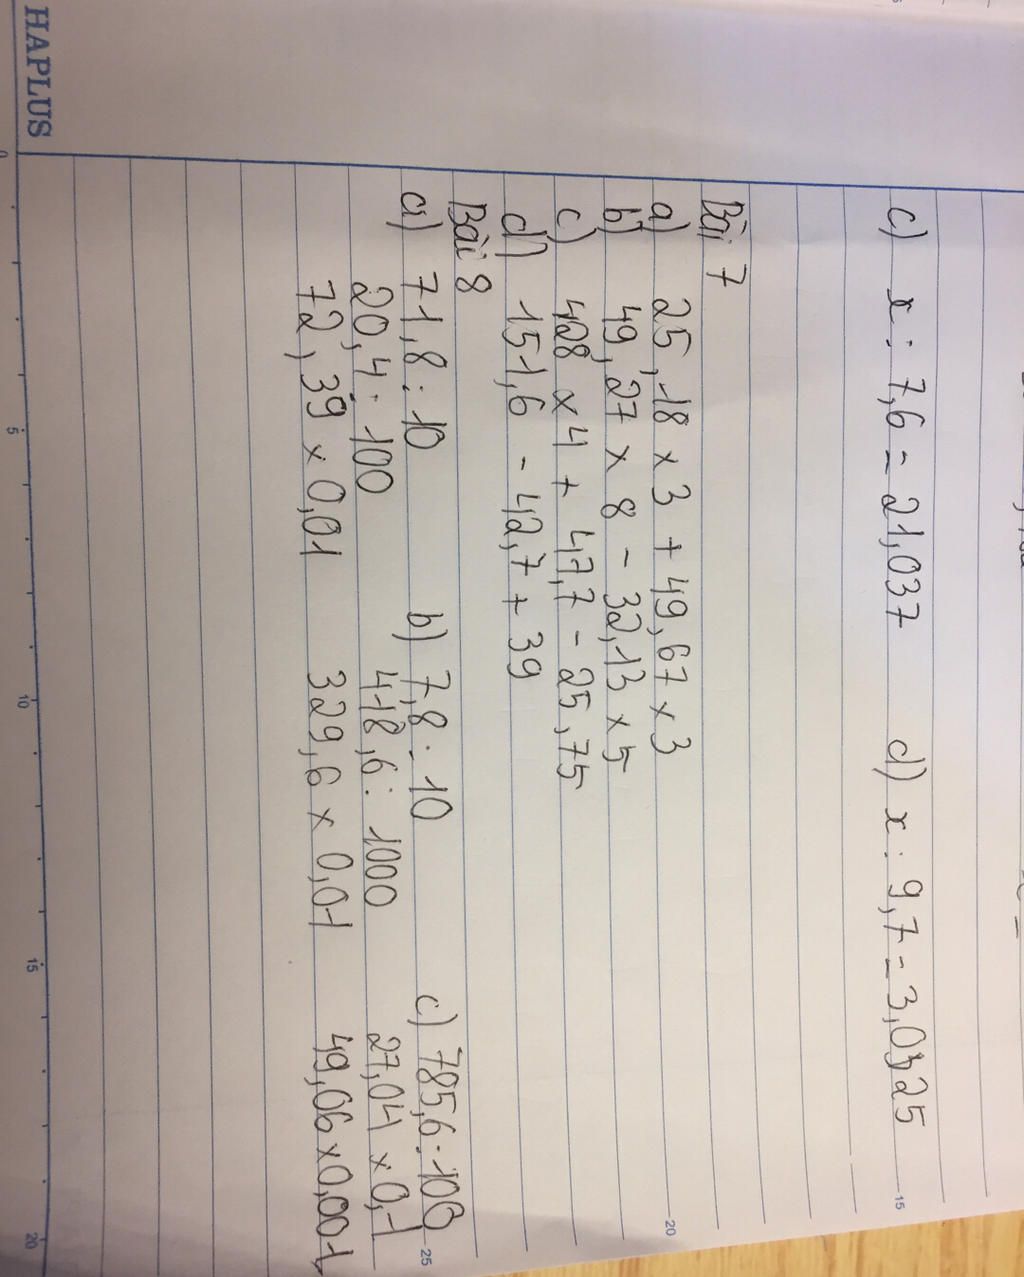 c) x : 7,6 = 21,037 d) x : 9,7 = 3,0325
Bài 7
a) 25,18 x 3 + 49,67 x 3
b) 49,27 x 8 - 32,13 x 5
c) 428 x 4 + 47,7 - 25,75
d) 151,6 - 42,7 + 39
Bài 8
a) 71,8 : 10 b) 7,8 : 10 c) 785,6 : 100
20,4 : 100 418,6 : 1000 27,04 x 0,1
72,39 x 0,01 329,6 x 0,01 49,06 x 0,001
HAPLUS
0 5 10 15 20
15
20
25